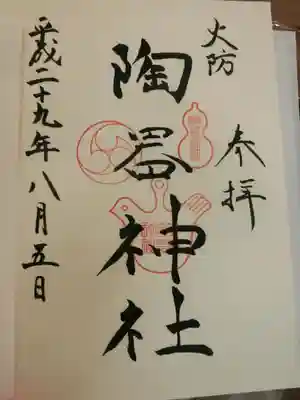 火防
奉拝
陶器神社
平成二十九年八月五日